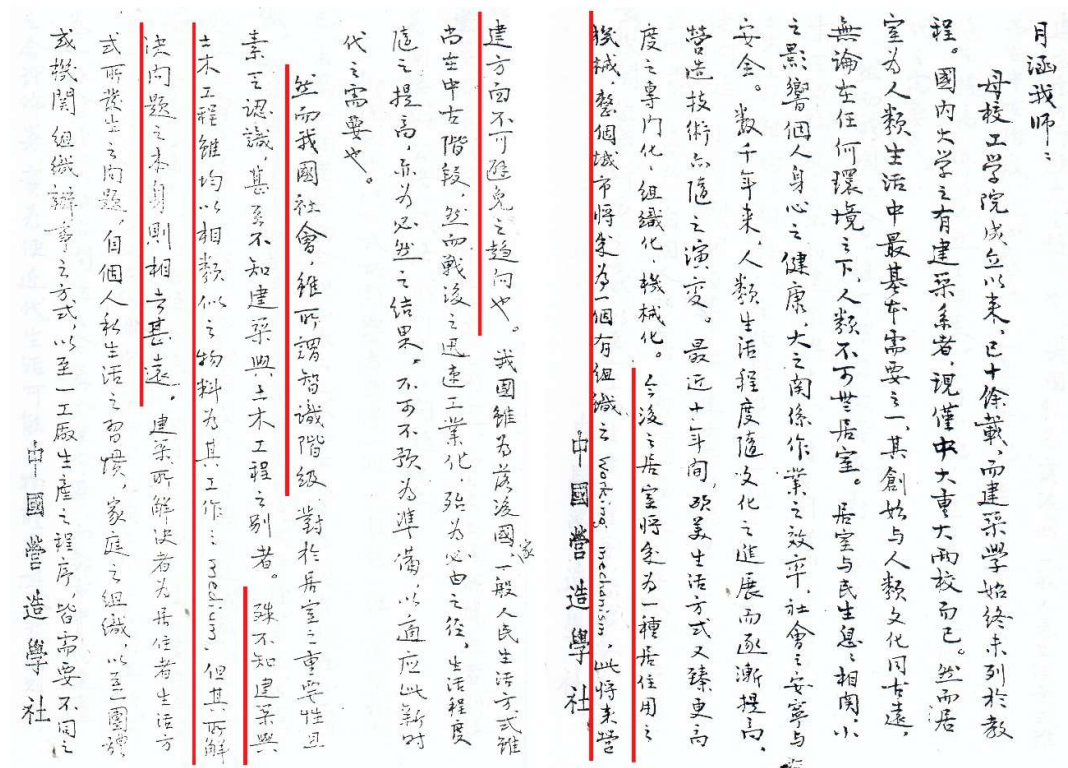 月涵我师：
母校工学院成立以来，已十馀載，而建築学始终未列於教
程。國内大学之有建築系者，現僅中大重大兩校而已。然而居
室为人類生活中最基本需要之一，其創始与人類文化同古遠，
無論在任何環境之下，人類不可無居室。居室与民生息息相関，小
之影響個人身心之健康，大之関係作業之效率，社會之安寧与
安全。数千年来，人類生活程度隨文化之進展而逐漸提高，
營造技術亦隨之演变。最近十年间，欧美生活方式又臻更高
度之専门化、组織化、機械化。今後之居室将成为一種居住用之
機械，整個城市将成为一個有组織之 Working mechanism，此将来營
中國營造學社
建方面不可避免之趨向也。我國雖为落後國家，一般人民生活方式雖
尚在中古階段，然而戰後之迅速工業化，殆为必由之径，生活程度
隨之提高，亦为必然之结果。不可不预为準備，以適应此新时
代之需要也。
然而我國社會，雖所謂智識階級，對於居室之重要性且
素乏認識，甚至不知建築與土木工程之别者。殊不知建築與
土木工程雖均以相類似之物料为其工作之 medium，但其所解
决问题之本身則相去甚遠。建築所解决者为居住者生活方
式所發生之问題，自個人私生活之習慣，家庭之组織，以至團體
或機関组織辦事之方式，以至一工厰生產之程序，皆需要不同之
中國營造學社